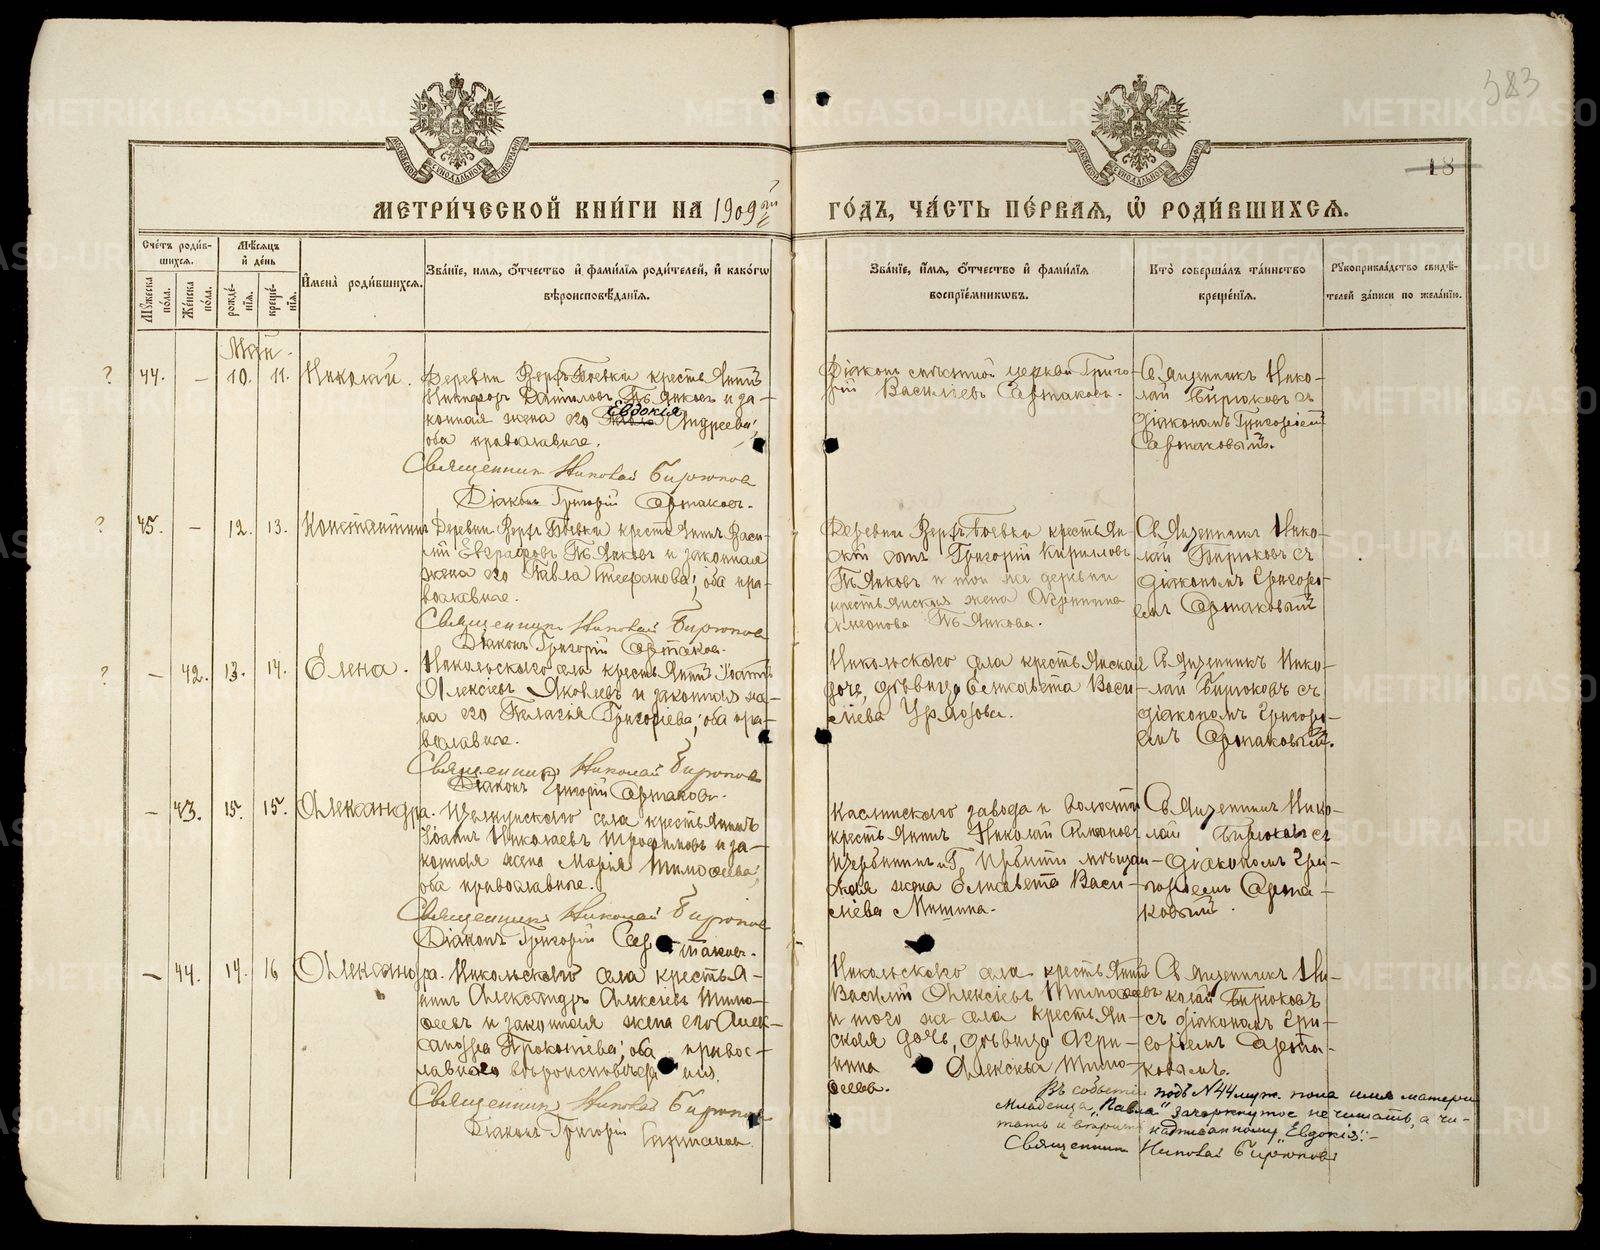 383
18
МЕТРИ́ЧЕСКОЙ КНИ́ГИ НА 1909 й ГО́ДЪ, ЧА́СТЬ ПЕ́РВАЯ, Ѿ РОДИ́ВШИХСЯ.
Сче́тъ роди́в-
шихся.
Мѣ́сяцъ
и де́нь
Мꙋжеска пола.
Же́нска пола.
рожде́нїя.
креще́нїя.
Имена̀ роди́вшихся.
Зва́нїе, имя, ѻ҆́тчество и҆ фами́лїѧ роди́телей, и҆ како́гѡ
вѣроисповѣ́данїѧ.
Зва́нїе, и҆́мя, ѻ҆́тчество и҆ фами́лїѧ
воспрїе́мникѡвъ.
Кто̀ соверша́лъ та́инство
креще́нїѧ.
Рꙋкоприкла́дство свидѣ́-
телей за́писи по жела́нїю.
Май.
? 44. – 10. 11. Николай.
Деревни Верхъ-Боевки крестьянинъ
Никифоръ Даниловъ Пьянковъ и за-
конная жена его Евдокія Андреева;
оба православные.
Священник Николай Бирюков
Діаконъ Григорій Сартаковъ.
Діаконъ мѣстной церкви Григо-
рій Васильевъ Сартаковъ.
Священникъ Нико-
лай Бирюковъ съ
діакономъ Григоріемъ
Сартаковымъ.
? 45. – 12. 13. Константинъ
Деревни Верхъ-Боевки крестьянинъ Васи-
лій Евграфовъ Пьянковъ и законная
жена его Павла Стефанова; оба пра-
вославные.
Священник Николай Бирюков
Діаконъ Григорій Сартаков.
Деревни Верхъ-Боевки крестьян-
скій сынъ Григорій Кирилловъ
Пьянковъ и той же деревни
крестьянская жена Агрипина
Пьянкова.
Священник Нико-
лай Бирюковъ съ
діакономъ Григорі-
емъ Сартаковымъ
? – 42. 13. 14. Елена.
Никольского села крестьянинъ Іоаннъ
Алексіевъ Яковлевъ и законная же-
на его Пелагія Григоріева; оба пра-
вославные.
Священник Николай Бирюков
Діаконъ Григорій Сартаковъ.
Никольского села крестьянская
дочь, дѣвица Елисавета Васи-
ліева
Священникъ Нико-
лай Бирюковъ съ
діакономъ Григорі-
емъ Сартаковымъ.
– 43. 15. 15. Александра.
села крестьянинъ
Іоаннъ Николаевъ Трофимовъ и за-
конная жена Марія Тимофеева;
оба православные.
Священник Николай Бирюков
Діаконъ Григорій Сартаковъ.
Каслинского завода и волости
крестьянинъ Николай Симонов
и г. Ирбити мѣщан-
ская жена Елисавета Васи-
ліева Мишина.
Священникъ Нико-
лай Бирюковъ съ
діакономъ Гри-
горіемъ Сарта-
ковымъ.
– 44. 14. 16 Александра.
Никольского села крестья-
нинъ Александръ Алексіевъ Тимо-
феевъ и законная жена его Алек-
сандра Прокопіева; оба правос-
лавного вѣроисповѣданія.
Священник Николай Бирюков
Діаконъ Григорій Сартаковъ.
Никольского села крестьянинъ
Василій Алексіевъ Тимофеевъ
и того же села крестьян-
ская дочь, дѣвица Агри-
пина Алексіева Тимо-
феева.
Священникъ Ни-
колай Бирюковъ
съ діакономъ Гри-
горіемъ Сарта-
ковымъ.
Въ событіи подъ N44 муж. пола имя матери
младенца „Павла" зачеркнутое не читать, а чи-
тать надписанному „Евдокія".–
Священник Николай Бирюков
METRIKI.GASO-URAL.RU